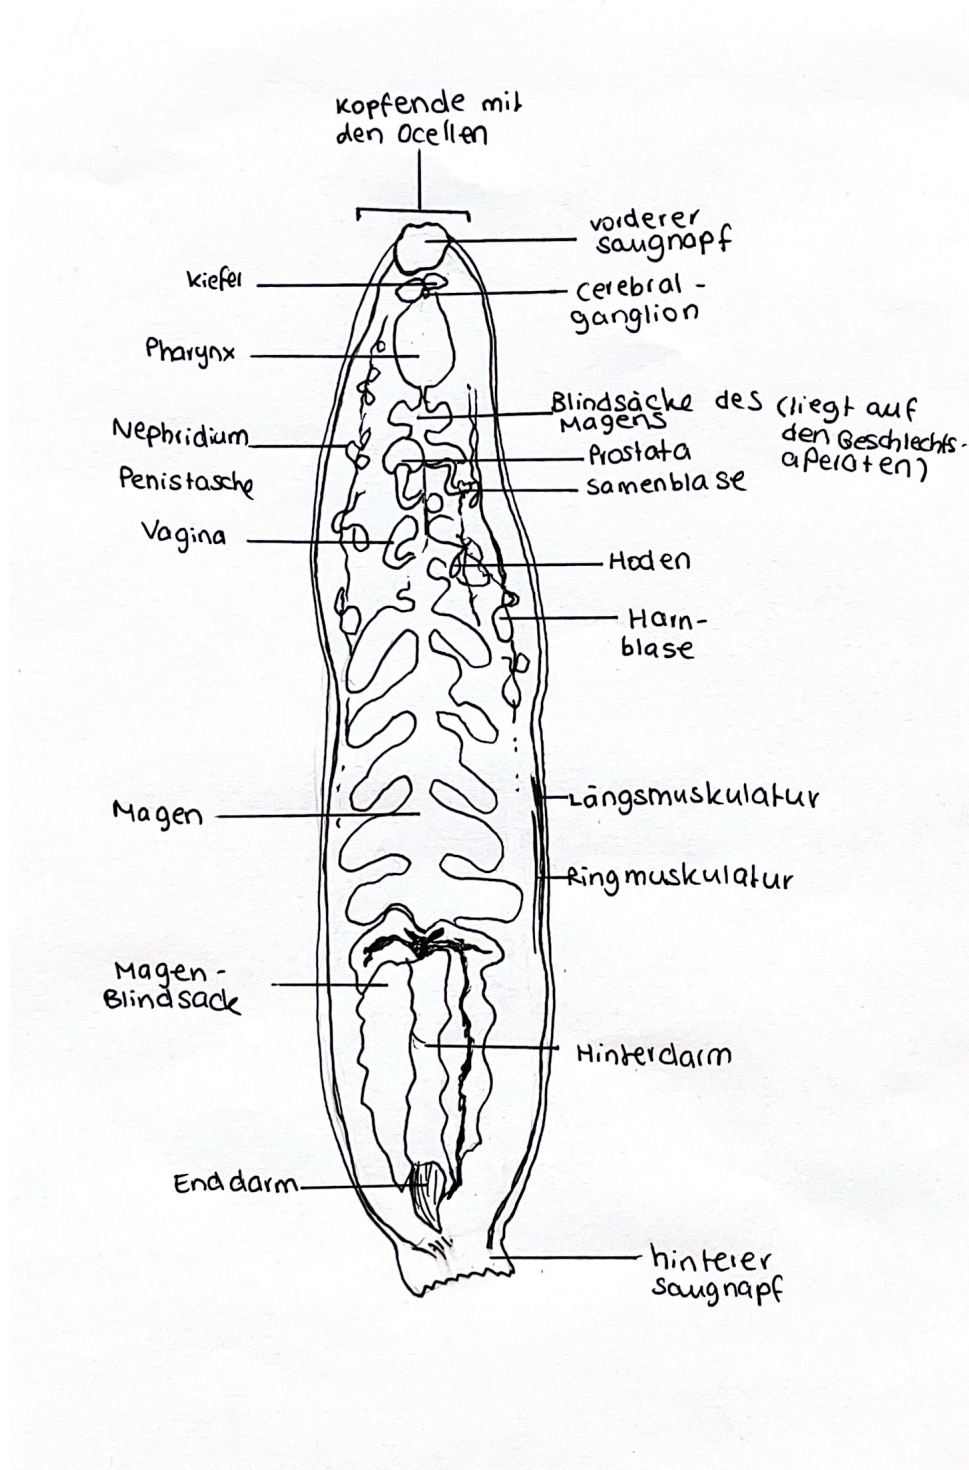 Kopfende mit
den Ocellen
vorderer
saugnapf
Kiefer
Cerebral-
ganglion
Pharynx
Blindsäcke des
Magens
(liegt auf
den Geschlechts-
aperaten)
Nephridium
Prostata
Penistasche
Samenblase
Vagina
Hoden
Harn-
blase
Längsmuskulatur
Magen
Ringmuskulatur
Magen-
Blindsack
Hinterdarm
Enddarm
hinterer
Saugnapf